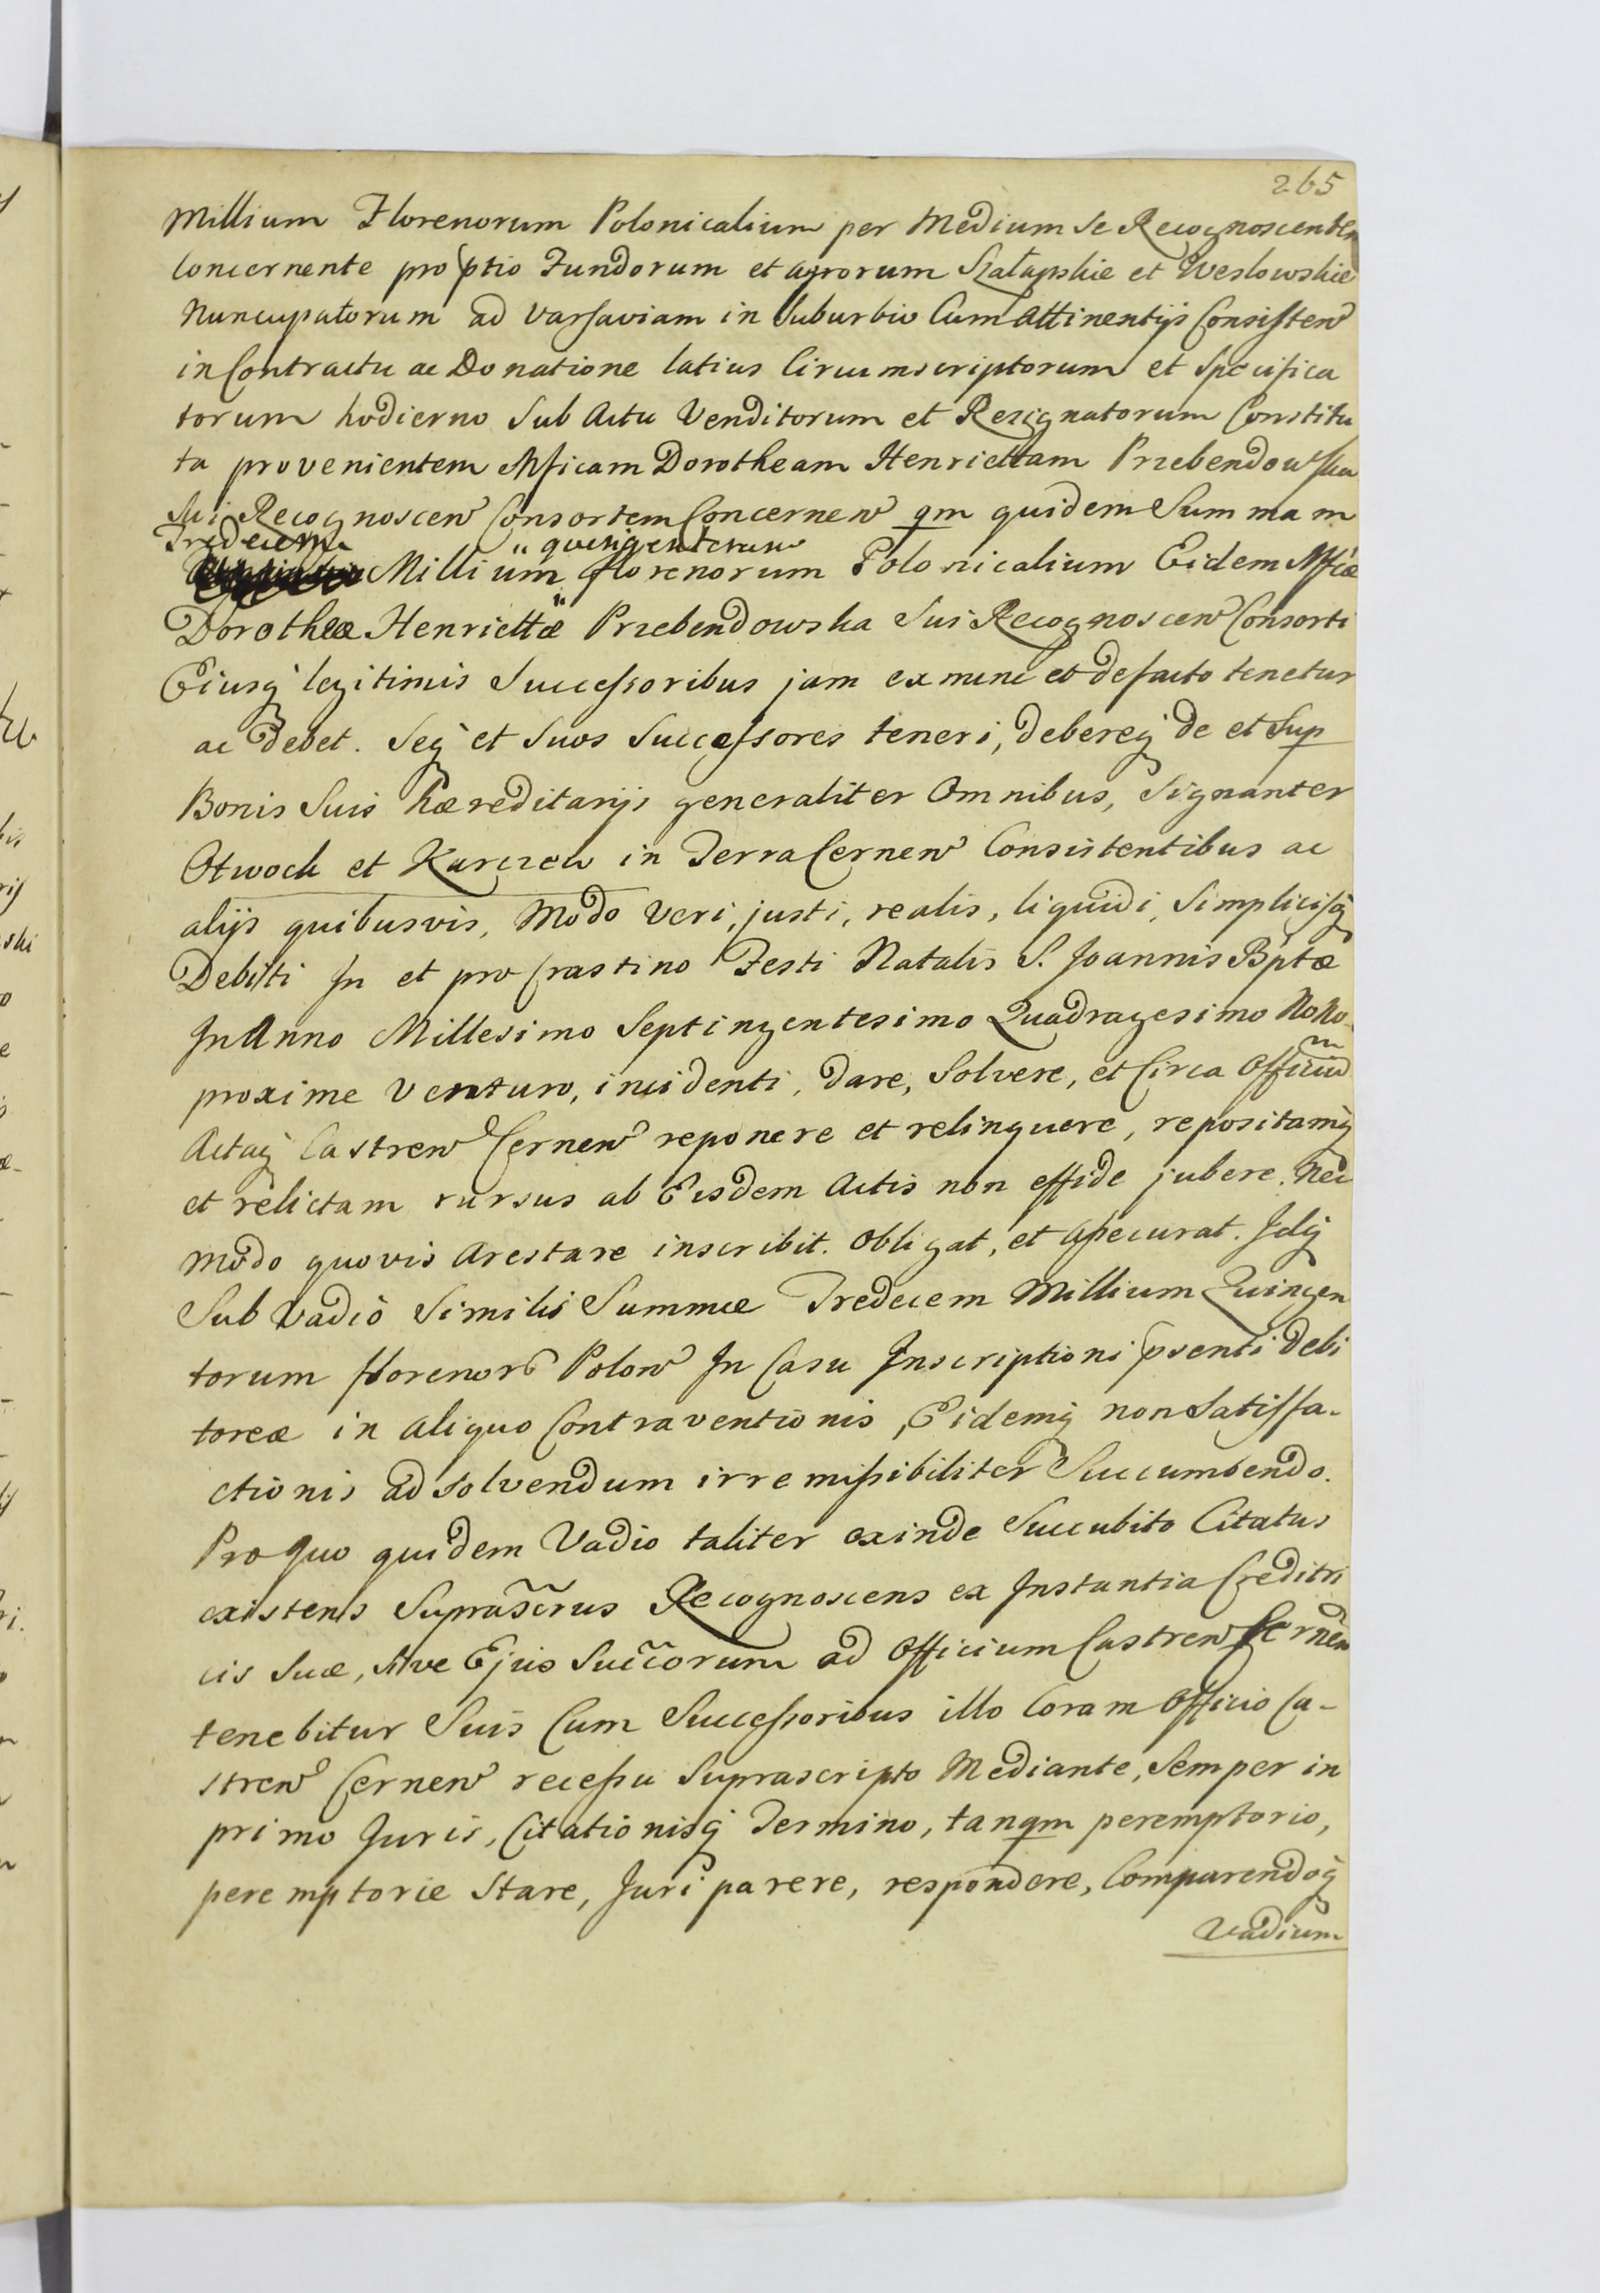 265
Millium Florenorum Polonicalium per Medium Se Recognoscentem
Concernente pro ptio Fundorum et agrorum Szałapskie et Weslowskie
Nuncupatorum ad Varsaviam in Suburbio Cum Attinentijs Consisten
in Contractu ac Donatione latius Circumscriptorum et Specifica
torum hodierno Sub Actu Venditorum et Rezignatorum Constitu
ta provenientem Mficam Dorotheam Henriettam Przebendowska
Sui Recognoscen Consortem Concernen qm quidem Summam
Tredecim " quingentorum
Millium florenorum Polonicalium Eidem Mficæ
Dorotheæ Henriettæ Przebendowska Sui Recognoscen Consorti
Eiusq legitimis Successoribus jam ex nunc et defacto tenetur
ac debet. Seq et Suos Successores teneri, debereq de et Sup
Bonis Suis hæreditarijs generaliter Omnibus, Signanter
Otwock et Karczew in Terra Cernen Consistentibus ac
alijs quibusvis, Modo Veri, justi, realis, liquidi, Simplicisq
Debiti In et pro Crastino Festi Natalis S. Joannis Bptæ
In Anno Millesimo Septingentesimo Quadragesimo Nono
proxime Venturo, incidenti, dare, Solvere, et Circa Officium
Actaq Castren Cernen reponere et relinquere, repositamq
et relictam rursus ab Eisdem Actis non effide jubere. Nec
modo quovis Arestare inscribit. Obligat, et Assecurat. Idq
Sub Vadio Similis Summæ Tredecem Millium Quingen
torum florenor Polon In Casu Inscriptioni psenti debi
toreæ in Aliquo Contraventionis, Eidemq non Satisfa-
ctionis ad solvendum irremissibiliter Succumbendo.
Pro quo quidem Vadio taliter exinde Succubito Citatus
existens Suprascrus Recognoscens ex Instantia Creditri
cis Suæ, Sive Ejus Succorum ad Officium Castren Cernen
tenebitur Suis Cum Successoribus illo Coram Officio Ca-
stren Cernen recessu Suprascripto Mediante, Semper in
primo Juris, Citationisq Termino, tanqm peremptorio,
peremptorie Stare, Juri parere, respondere, Comparendoq
Vadium